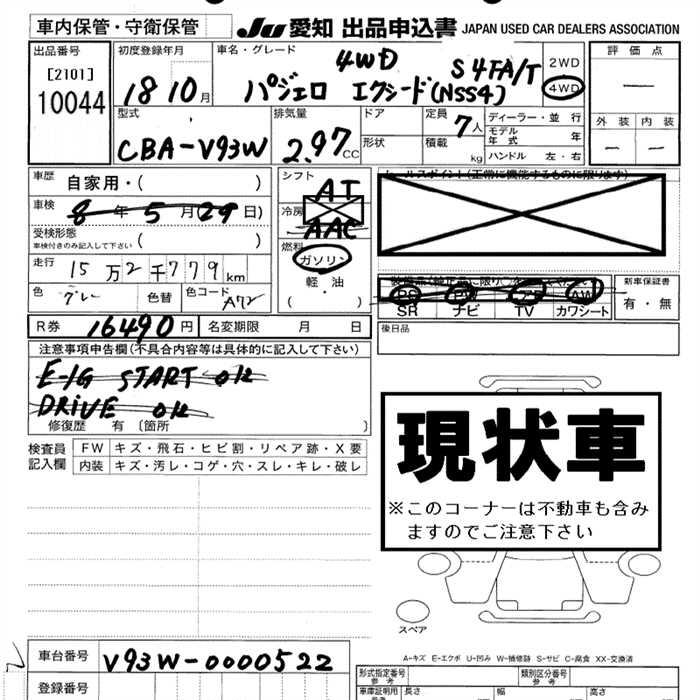 車内保管・守衛保管
JU 愛知 出品申込書 JAPAN USED CAR DEALERS ASSOCIATION
出品番号
[2101]
10044
初度登録年月
18 10月
車名・グレード
4WD S4FA/T
パジェロ エクシード(NSS4)
2WD
4WD
評価点
—
外装 内装
— —
型式
CBA-V93W
排気量
2.97cc
ドア
形状
定員 7人
積載 kg
ディーラー・並行
モデル年式 年
ハンドル 左・右
車歴 自家用・( )
車検 8年 5月(29日)
受検形態
車検付きのみ記入して下さい ( )
走行 15万2千779km
色 グレー 色替 色コード A72
シフト
AT
冷房
AAC
燃料
ガソリン
軽・油
( ・ )
セールスポイント(正常に機能するものに限ります)
PS PW AW
SR ナビ TV カワシート
新車保証書
有・無
後日品
R券 16490円 名変期限 月 日
注意事項申告欄(不具合内容等は具体的に記入して下さい)
E/G START OK
DRIVE OK
修復歴 有 〔箇所 〕
検査員記入欄
FW キズ・飛石・ヒビ割・リペア跡・X要
内装 キズ・汚レ・コゲ・穴・スレ・キレ・破レ
現状車
※このコーナーは不動車も含み
ますのでご注意下さい
スペア
A-キズ E-エクボ U-凹み W-補修跡 S-サビ C-腐食 XX-交換済
車台番号 V93W-0000522
登録番号
形式指定番号 参考
類別区分番号 参考
車庫証明用 参考 長さ 幅 高さ